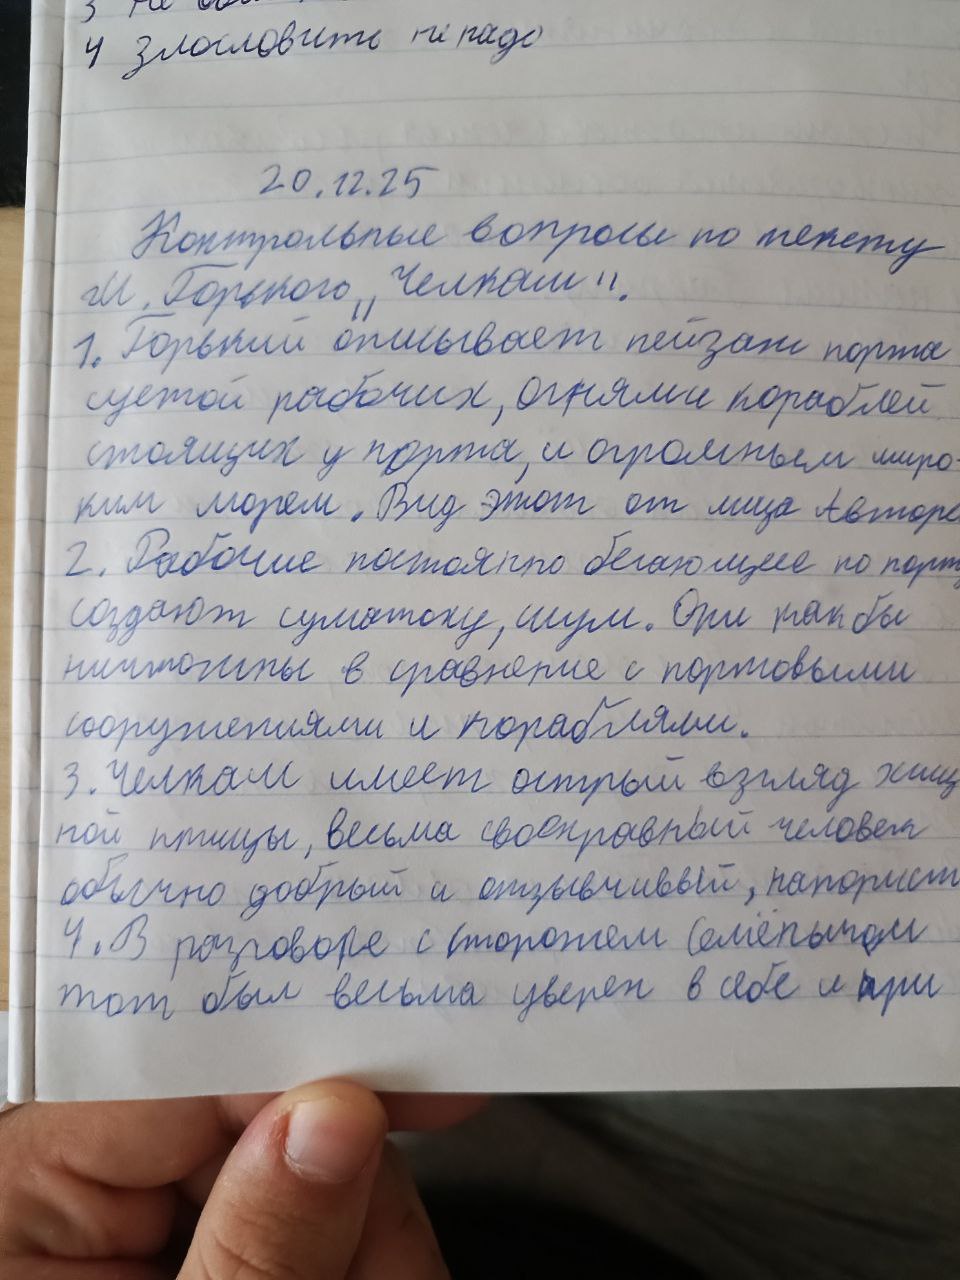 3 Не
4 Злословить не надо
20.12.25
Контрольные вопросы по тексту
М. Горького „Челкаш".
1. Горький описывает пейзаж порта
суетой рабочих, огнями кораблей
стоящих у порта, и огромным широ-
ким морем. Вид этот от лица Автора
2. Рабочие постоянно бегающие по порту
создают суматоху, шум. Они как бы
ничтожны в сравнение с портовыми
сооружениями и кораблями.
3. Челкаш имеет острый взгляд хищ
ной птицы, весьма своенравный человек
обычно добрый и отзывчивый, напорист
4. В разговоре с сторожем Семёнычом
тот был весьма уверен в себе и при